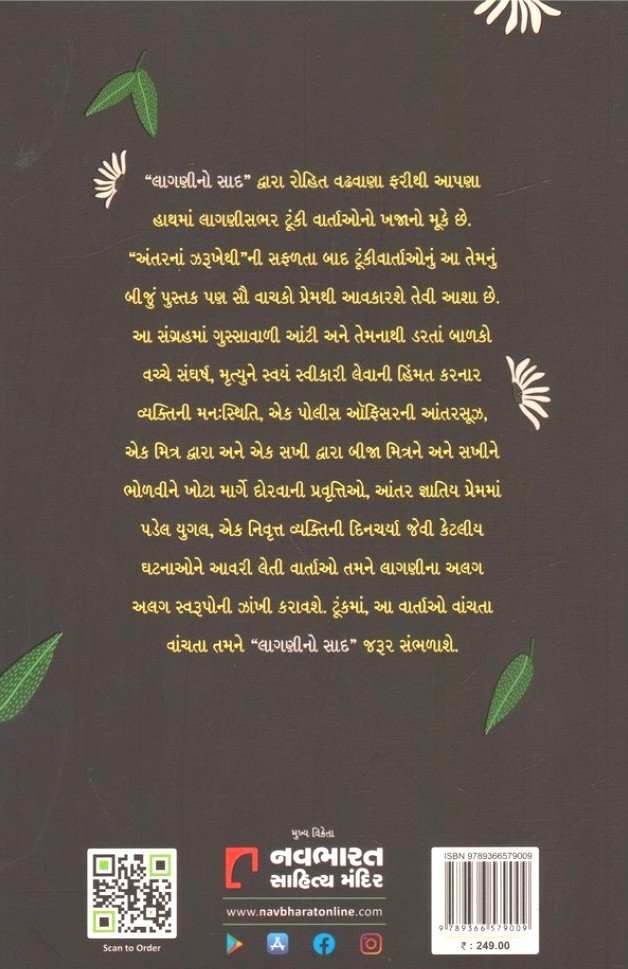 “લાગણીનો સાદ” દ્વારા રોહિત વઢવાણા ફરીથી આપણા
હાથમાં લાગણીસભર ટૂંકી વાર્તાઓનો ખજાનો મૂકે છે.
“અંતરનાં ઝરૂખેથી”ની સફળતા બાદ ટૂંકીવાર્તાઓનું આ તેમનું
બીજું પુસ્તક પણ સૌ વાચકો પ્રેમથી આવકારશે તેવી આશા છે.
આ સંગ્રહમાં ગુસ્સાવાળી આંટી અને તેમનાથી ડરતાં બાળકો
વચ્ચે સંઘર્ષ, મૃત્યુને સ્વયં સ્વીકારી લેવાની હિંમત કરનાર
વ્યક્તિની મનઃસ્થિતિ, એક પોલીસ ઑફિસરની આંતરસૂઝ,
એક મિત્ર દ્વારા અને એક સખી દ્વારા બીજા મિત્રને અને સખીને
ભોળવીને ખોટા માર્ગે દોરવાની પ્રવૃત્તિઓ, આંતર જ્ઞાતિય પ્રેમમાં
પડેલ યુગલ, એક નિવૃત્ત વ્યક્તિની દિનચર્યા જેવી કેટલીય
ઘટનાઓને આવરી લેતી વાર્તાઓ તમને લાગણીના અલગ
અલગ સ્વરૂપોની ઝાંખી કરાવશે. ટૂંકમાં, આ વાર્તાઓ વાંચતા
વાંચતા તમને “લાગણીનો સાદ” જરૂર સંભળાશે.
Scan to Order
મુખ્ય વિક્રેતા
નવભારત
સાહિત્ય મંદિર
www.navbharatonline.com
ISBN 9789366579009
9 789366 579009
₹ : 249.00